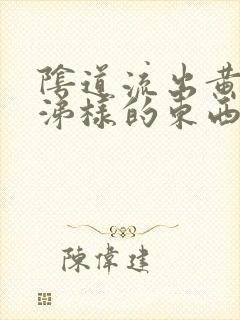 陰道流出黃
涕樣的東西
陳偉建